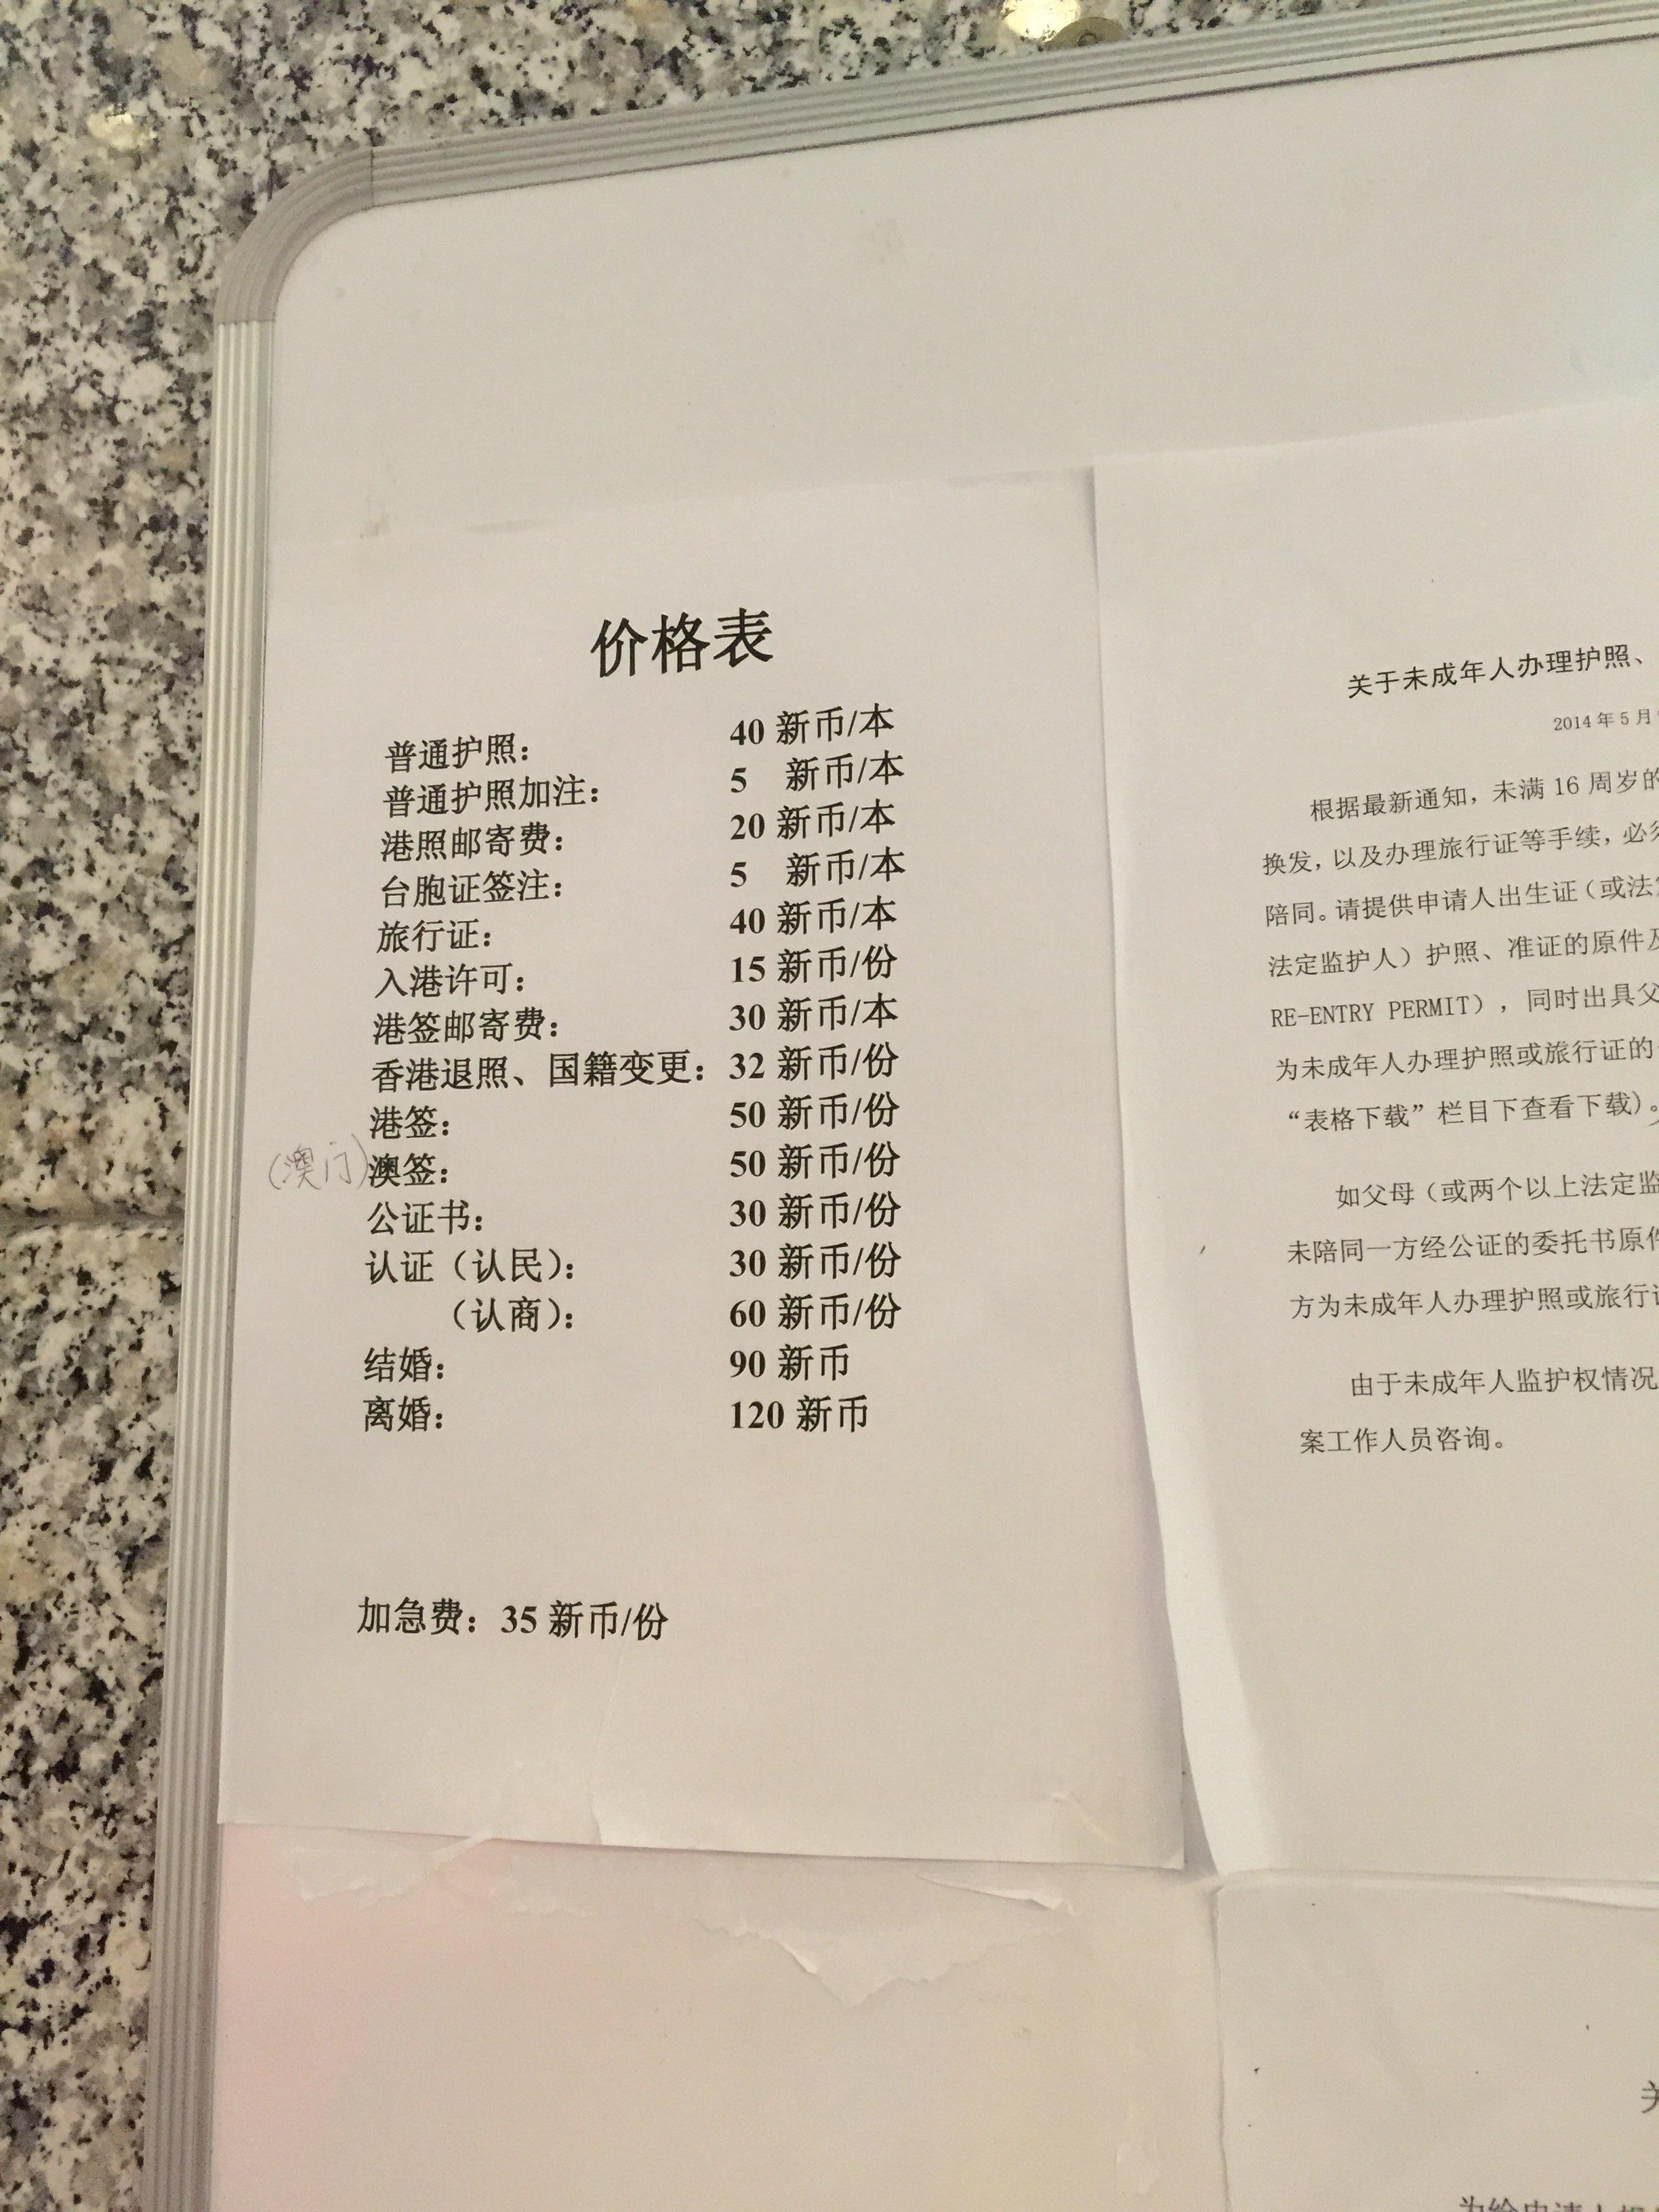 价格表
普通护照： 40 新币/本
普通护照加注： 5 新币/本
港照邮寄费： 20 新币/本
台胞证签注： 5 新币/本
旅行证： 40 新币/本
入港许可： 15 新币/份
港签邮寄费： 30 新币/本
香港退照、国籍变更：32 新币/份
港签： 50 新币/份
（澳门）澳签： 50 新币/份
公证书： 30 新币/份
认证（认民）： 30 新币/份
（认商）： 60 新币/份
结婚： 90 新币
离婚： 120 新币
加急费：35 新币/份
关于未成年人办理护照、
2014 年 5 月
根据最新通知，未满 16 周岁的
换发，以及办理旅行证等手续，必须
陪同。请提供申请人出生证（或法
法定监护人）护照、准证的原件及
RE-ENTRY PERMIT），同时出具父
为未成年人办理护照或旅行证的
“表格下载”栏目下查看下载）。
如父母（或两个以上法定监
未陪同一方经公证的委托书原件
方为未成年人办理护照或旅行证
由于未成年人监护权情况
案工作人员咨询。